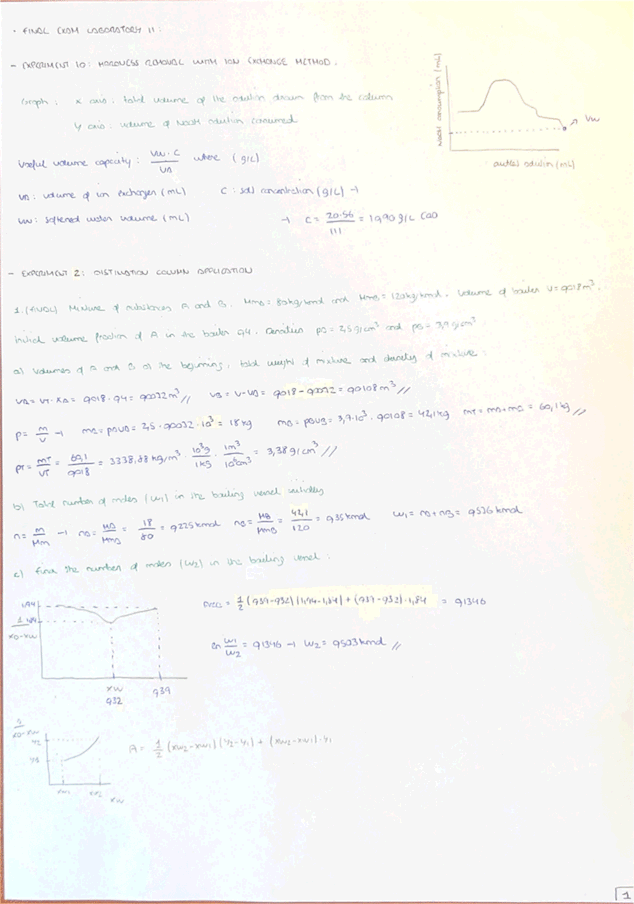 · FINAL EXAM LABORATORY II:
- EXPERIMENT 10: HARDNESS REMOVAL WITH ION EXCHANGE METHOD.
Graph: X axis: total volume of the solution drawn from the column
Y axis: volume of NaOH solution consumed
NaOH consumption (mL)
Vw
outlet solution (mL)
Useful volume capacity: Vw · C / VA where (g/L)
VA: volume of ion exchanger (mL) C: salt concentration (g/L) →
Vw: softened water volume (mL) → C = 20·56 / 111 = 10,90 g/L CaO
- EXPERIMENT 2: DISTILLATION COLUMN APPLICATION
1. (FINAL) Mixture of substances A and B. MmA = 80 kg/kmol and MmB = 120 kg/kmol. Volume of boiler V = 0,018 m³.
Initial volume fraction of A in the boiler 0,4. Densities ρA = 2,5 g/cm³ and ρB = 3,9 g/cm³
a) Volumes of A and B at the beginning, total weight of mixture and density of mixture:
VA = VT · XA = 0,018 · 0,4 = 0,0072 m³ // VB = V - VA = 0,018 - 0,0072 = 0,0108 m³ //
ρ = m/V → mA = ρA VA = 2,5 · 0,0072 · 10³ = 18 kg mB = ρB VB = 3,9 · 10³ · 0,0108 = 42,1 kg mT = mA + mB = 60,1 kg //
ρT = mT/VT = 60,1/0,018 = 3338,88 kg/m³ · 10³g/1kg · 1m³/10⁶cm³ = 3,38 g/cm³ //
b) Total number of moles (W1) in the boiling vessel initially
n = m/Mm → nA = MA/MmA = 18/80 = 0,225 kmol nB = MB/MmB = 42,1/120 = 0,35 kmol W1 = nA + nB = 0,576 kmol
c) Find the number of moles (W2) in the boiling vessel:
1,94
1,84
1/xD-xW
xW
0,32
0,39
Area = 1/2 (0,39-0,32)(1,94-1,84) + (0,39-0,32)·1,84 = 0,1346
ln W1/W2 = 0,1346 → W2 = 0,503 kmol //
1/xD-xW
y2
y1
xW1
xW2
xW
A = 1/2 (xW2-xW1)(y2-y1) + (xW2-xW1)·y1
1